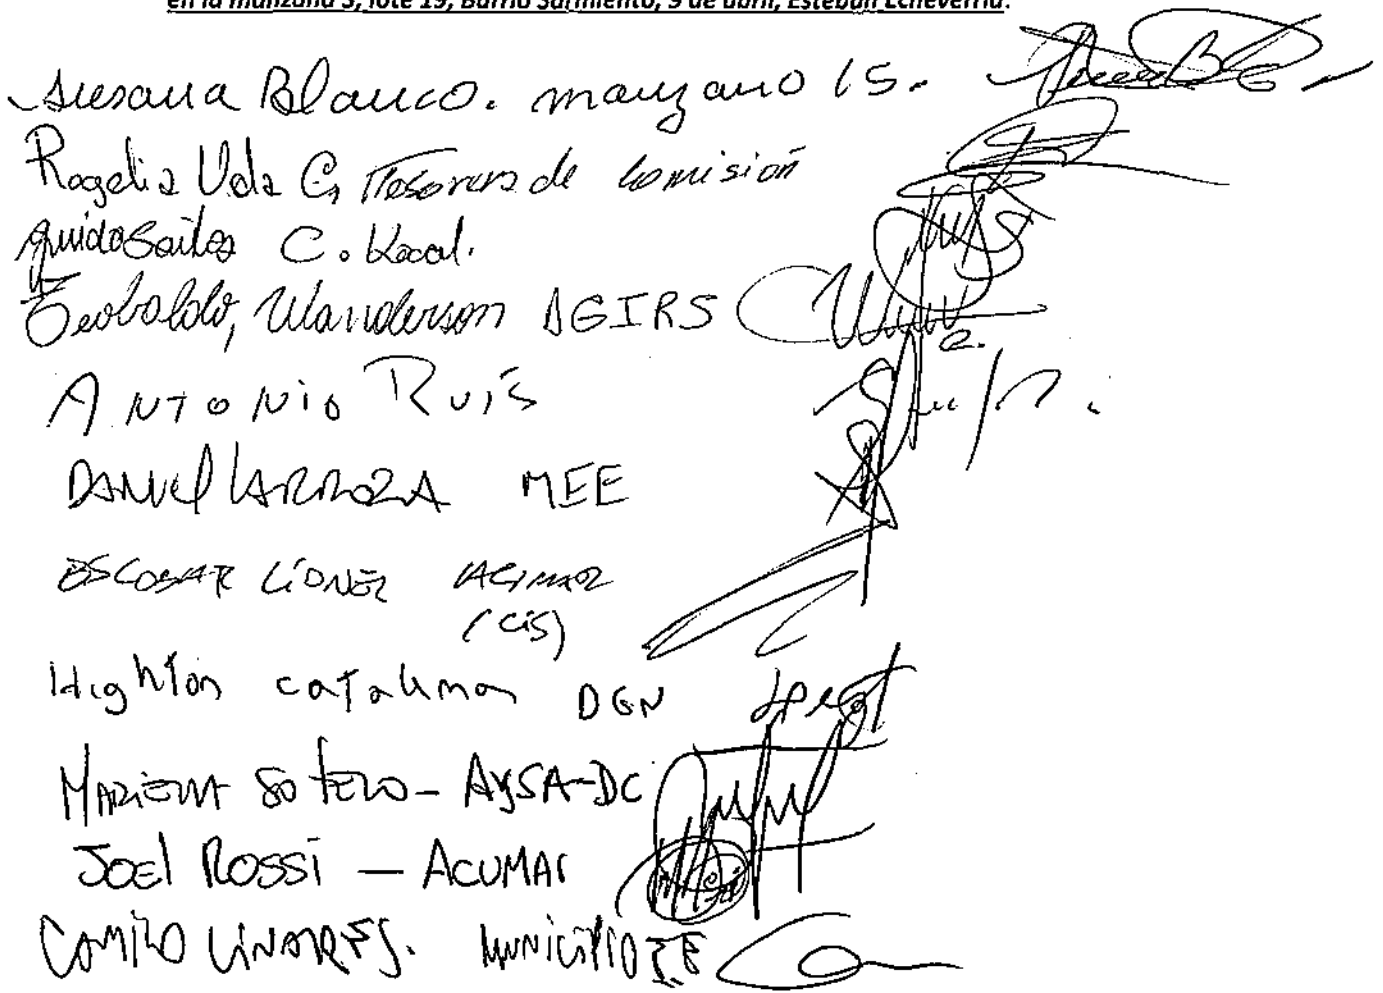 en la manzana 3, lote 19, Barrio Sarmiento, 9 de abril, Esteban Echeverría.
Susana Blanco. manzano 15.
Rogelia Vela C, Tesorera de Comisión
C.
Teobaldo, Wanderson DGIRS
ANTONIO RUIS
DANIEL LARROZA MEE
ESCOBAR LIONEL ACUMAR
(CIS)
Highton catalina DGN
MARIENA SOTELO - AYSA-DC
JOEL ROSSI — ACUMAR
CAMILO LINARES. MUNICIPIO E.E